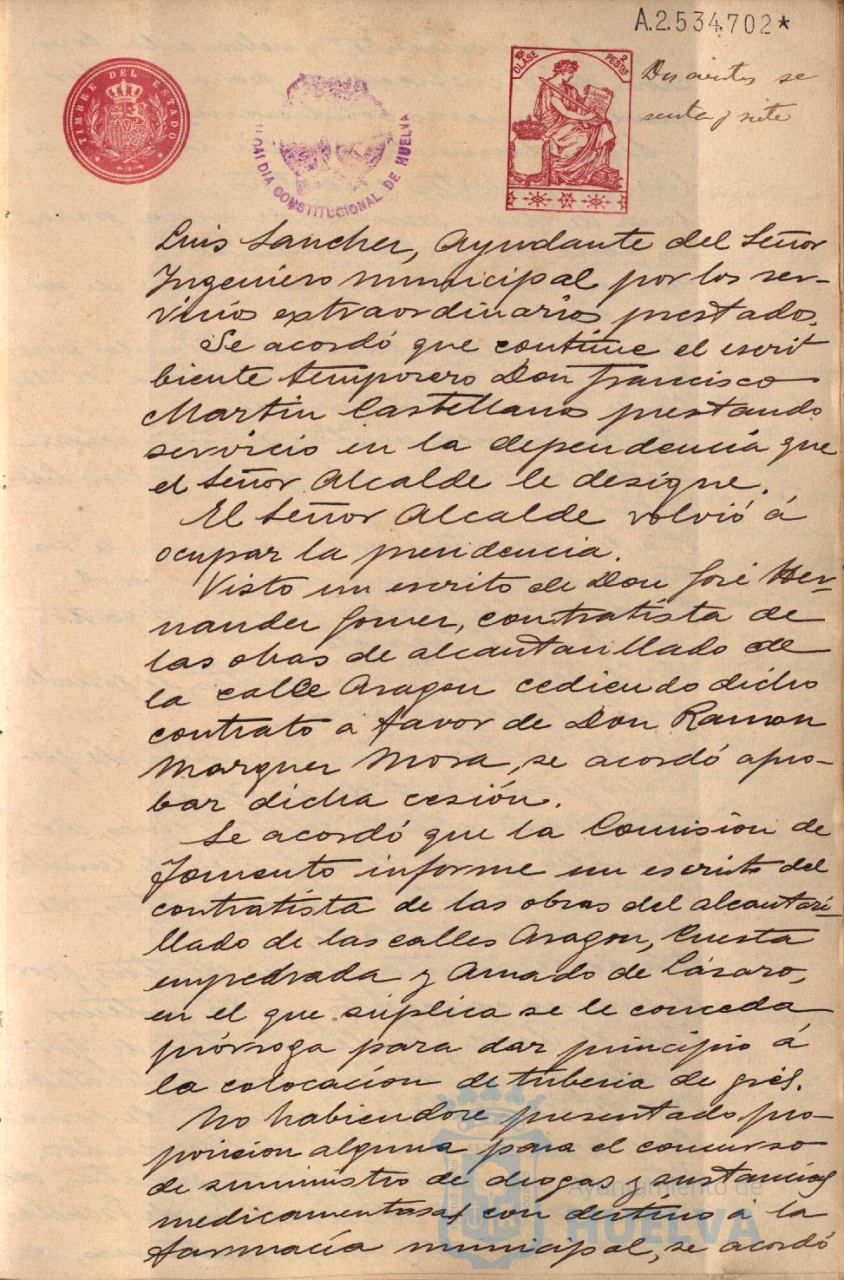 A.2.534.702*
TIMBRE DEL ESTADO
ALCALDIA CONSTITUCIONAL DE HUELVA
10ª CLASE
2 PESETAS
Doscientos se
senta y siete
Luis Sanchez, Ayudante del Señor
Ingeniero municipal por los ser-
vicios extraordinarios prestados.
Se acordó que continue el escri
biente temporero Don Francisco
Martin Castellanos prestando
servicio en la dependencia que
el Señor Alcalde le designe.
El Señor Alcalde volvió á
ocupar la presidencia.
Visto un escrito de Don José Her-
nandez Gomez, contratista de
las obras de alcantarillado de
la calle Aragon cediendo dicho
contrato a favor de Don Ramon
Marquez Mora, se acordó apro-
bar dicha cesión.
Se acordó que la Comision de
Fomento informe un escrito del
contratista de las obras del alcantari-
llado de las calles Aragon, Cuesta
empedrada y Amado de Lázaro,
en el que súplica se le conceda
prórroga para dar principio á
la colocacion de tuberia de grés.
No habiendose presentado pro-
posicion alguna para el concurso
de suministro de drogas y sustancias
medicamentosas con destino á la
farmacía municipal, se acordó
Ayuntamiento de
HUELVA